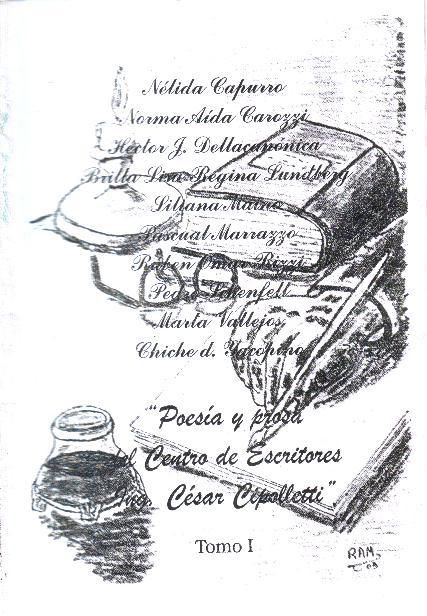 Nélida Capurro
Norma Aída Carozzi
Héctor J. Dellacanónica
Lina Regina Lundberg
Liliana
Pascual Marrazzo
Rubén Rizzi
Pedro
Marta Vallejos
Chiche d.
"Poesía y prosa
del Centro de Escritores
Ing. César Cipolletti"
Tomo I
RAM.